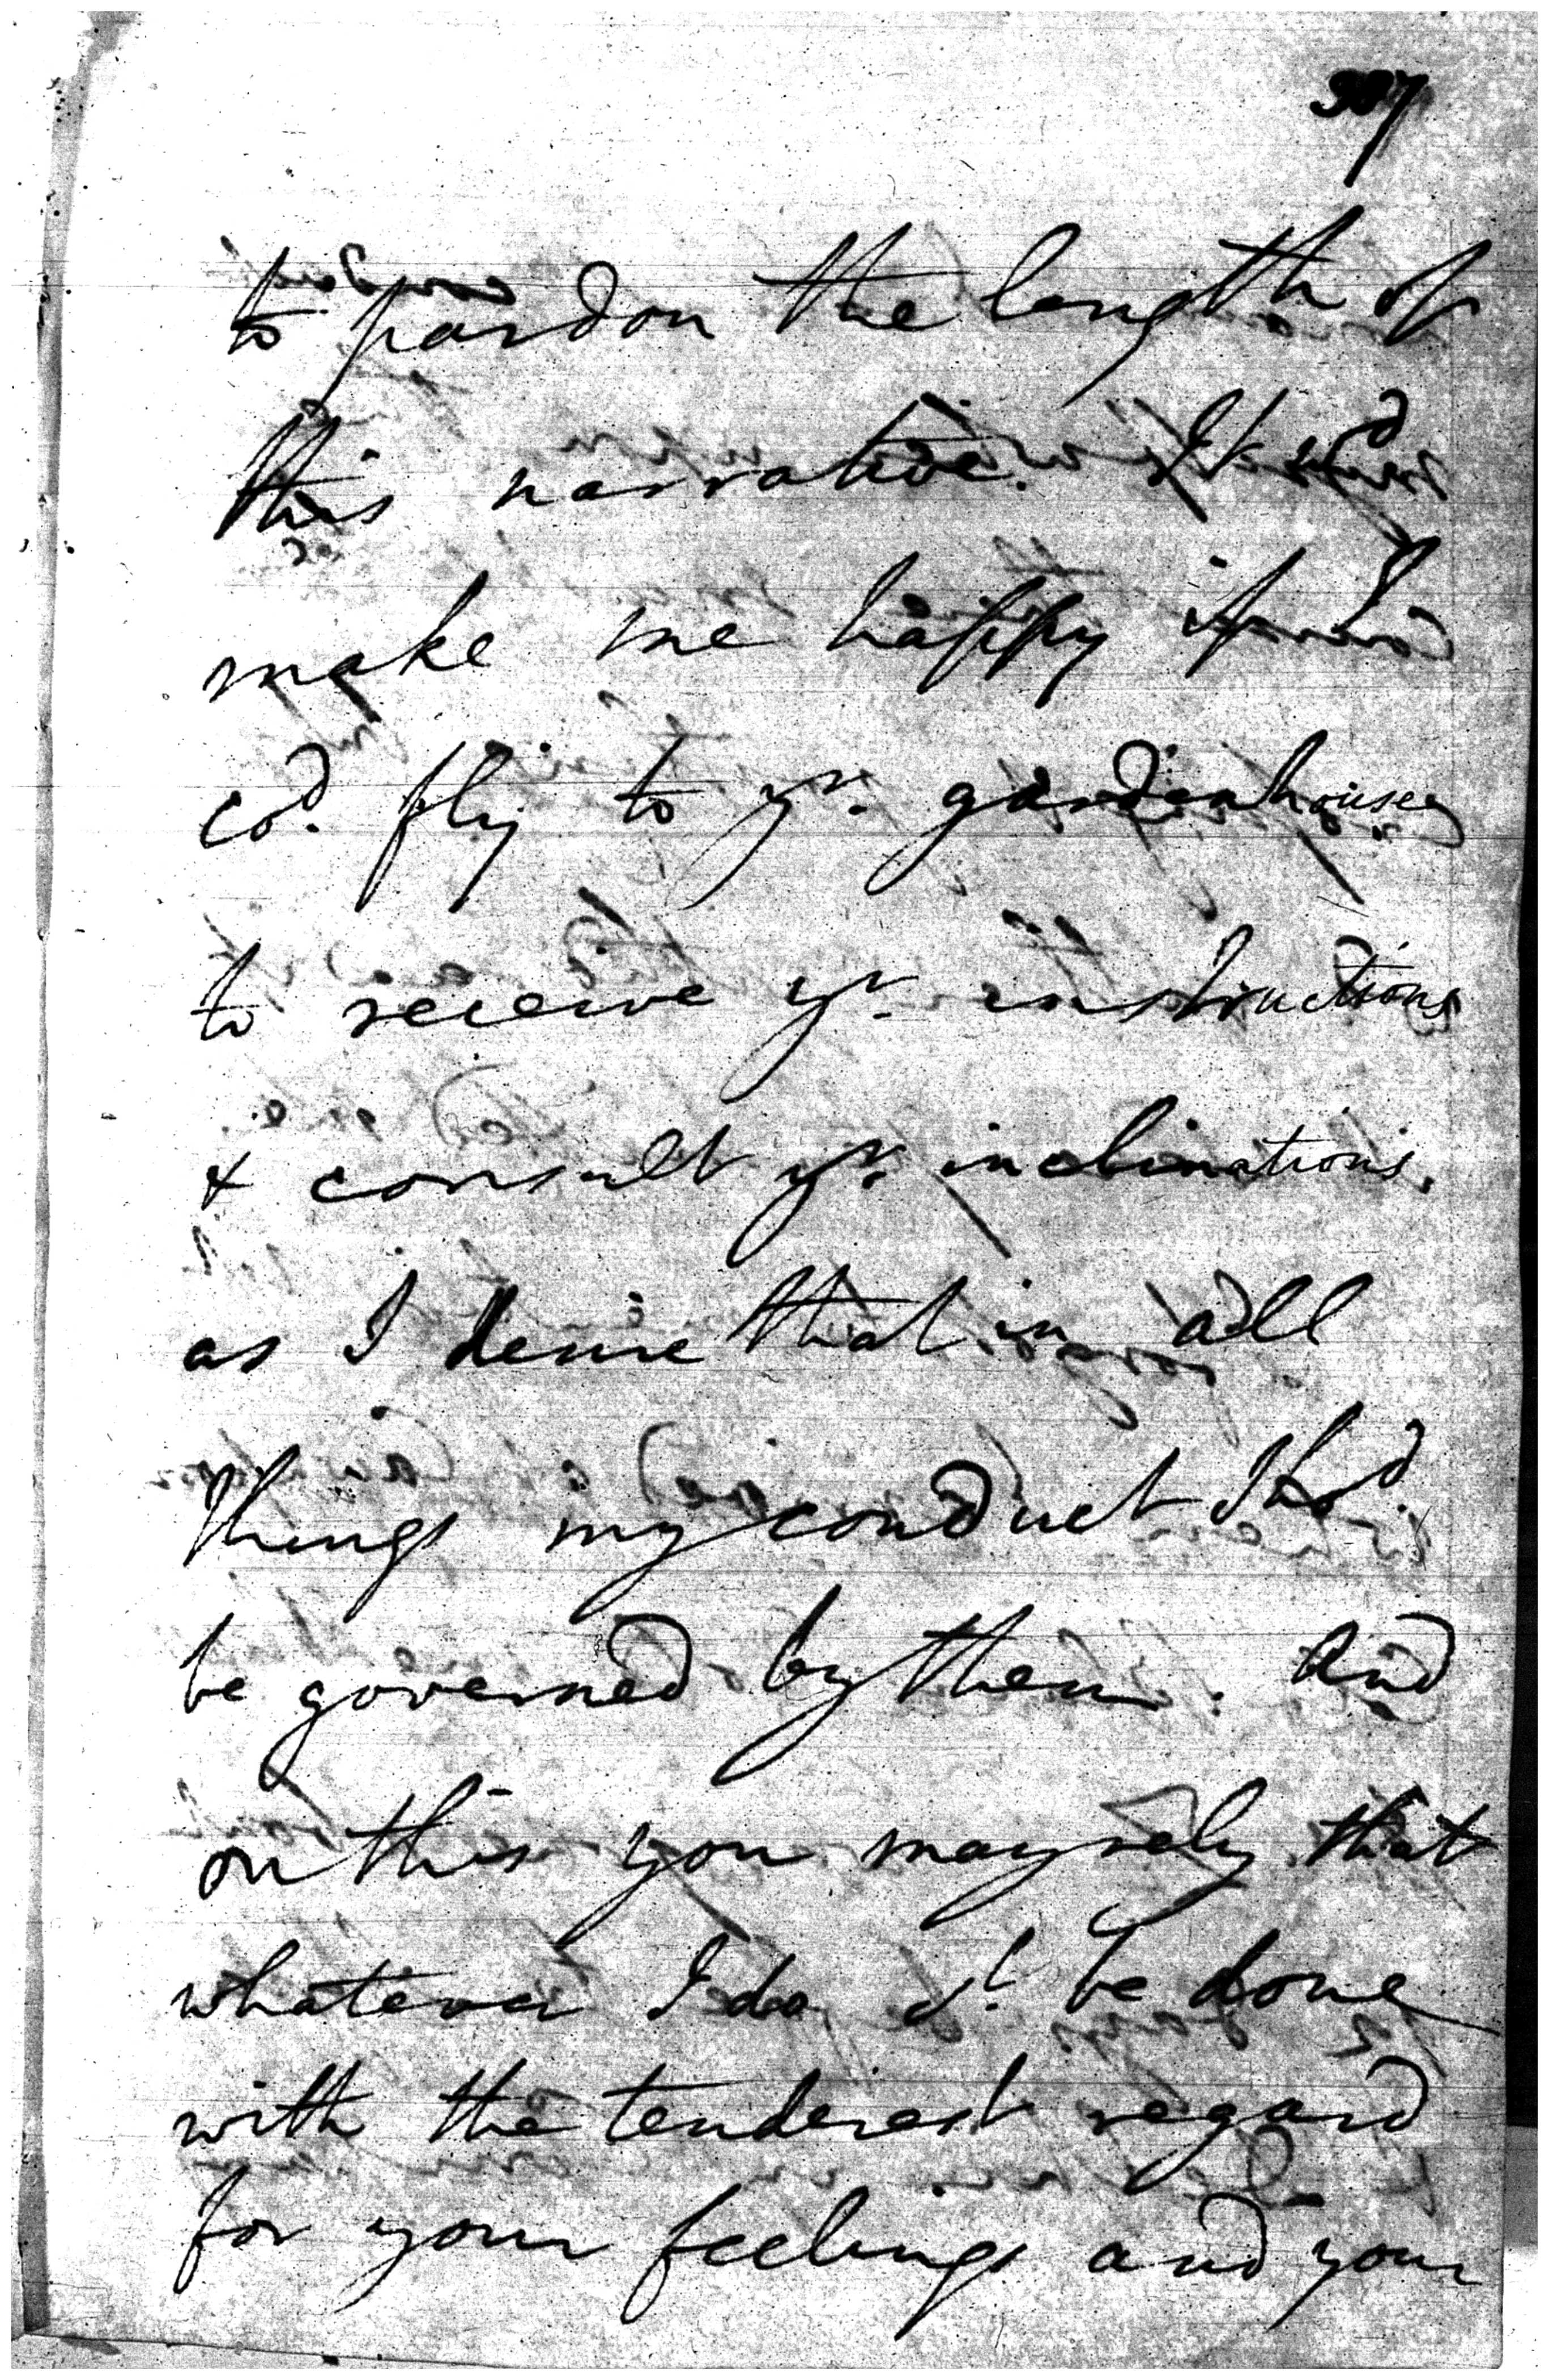 307
to pardon the length of
this narrative. It wd
make me happy if I
cod. fly to yr. gardenhouse
to receive yr. instructions
& consult yr. inclinations.
as I desire that in all
things my conduct shod.
be governed by them. And
on this you may rely that
whatever I do sl. be done
with the tenderest regard
for your feelings and your